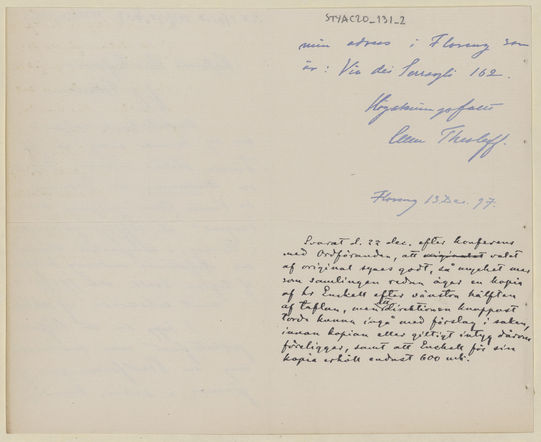 STYAC20_131_2
min adress i Florenz som
är: Via dei Serragli 162.
Högaktningsfullt
Ellen Thesleff.
Florenz 13 Dec. 97.
Svarat d. 22 dec. efter konferens
med Ordföranden, att originalet valet
af original synes godt, så mycket mer
som samlingen redan äger en kopia
af hr Enckell efter vänstra hälften
af taflan, men att direktionen knappast
torde kunna ingå med förslag i saken,
innan kopian eller giltigt intyg därom
föreligger, samt att Enckell för sin
kopia erhöll endast 600 mk.